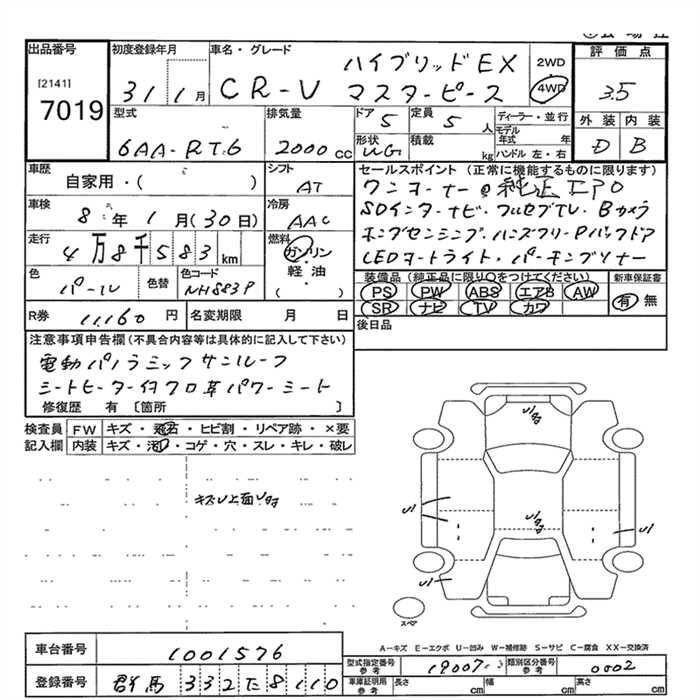 出品番号
[2141]
7019
初度登録年月
31 1月
車名・グレード
CR-V ハイブリッドEX
マスターピース
2WD
4WD
評価点
3.5
外装 内装
D B
型式
6AA-RT6
排気量
2000 cc
ドア 5
定員 5 人
ディーラー・並行
モデル年式 年
ハンドル 左・右
形状 WG
積載 kg
車歴
自家用・( )
シフト
AT
車検
8年1月(30日)
冷房
AAC
走行
4万8千583 km
燃料
ガソリン
軽油
( )
色
パール
色替
色コード
NH883P
セールスポイント (正常に機能するものに限ります)
ワンオーナー 純正エアロ
SDインターナビ・フルセグTV・Bカメラ
ホンダセンシング・ハンズフリーPバックドア
LEDオートライト・パーキングソナー
装備品 (純正品に限り○をつけてください)
PS PW ABS エアB AW
SR ナビ TV カワ
新車保証書
有 無
R券 11,160 円
名変期限 月 日
後日品
注意事項申告欄 (不具合内容等は具体的に記入して下さい)
電動パノラミックサンルーフ
シートヒーター付クロ革パワーシート
修復歴 有 〔箇所 〕
検査員記入欄
FW キズ・飛石・ヒビ割・リペア跡・×要
内装 キズ・汚レ・コゲ・穴・スレ・キレ・破レ
キズU上面Uタタ
Uタタ
Uタタ
U1
U1
U1
スペア
A-キズ E-エクボ U-凹み W-補修跡 S-サビ C-腐食 XX-交換済
車台番号 1001576
登録番号 群馬 332 た 8110
型式指定番号 参考 19007
類別区分番号 参考 0002
車庫証明用 参考 長さ cm 幅 cm 高さ cm